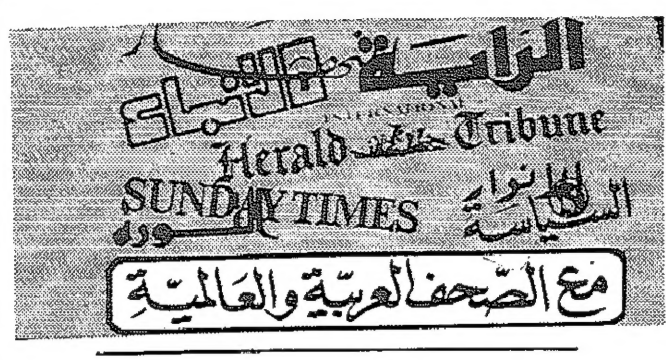 الراية
الأنباء
INTERNATIONAL
Herald Tribune
الأنوار
SUNDAY TIMES
السياسة
الثورة
مع الصّحف العربيّة والعَالميّةِ